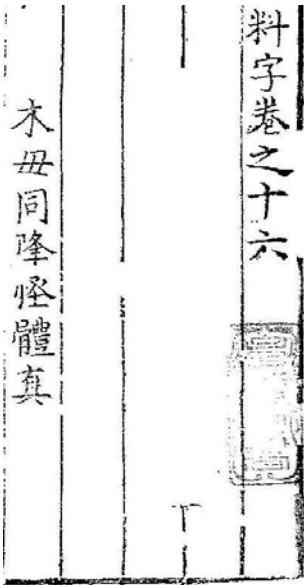 料字卷之十六
木母同降怪體真